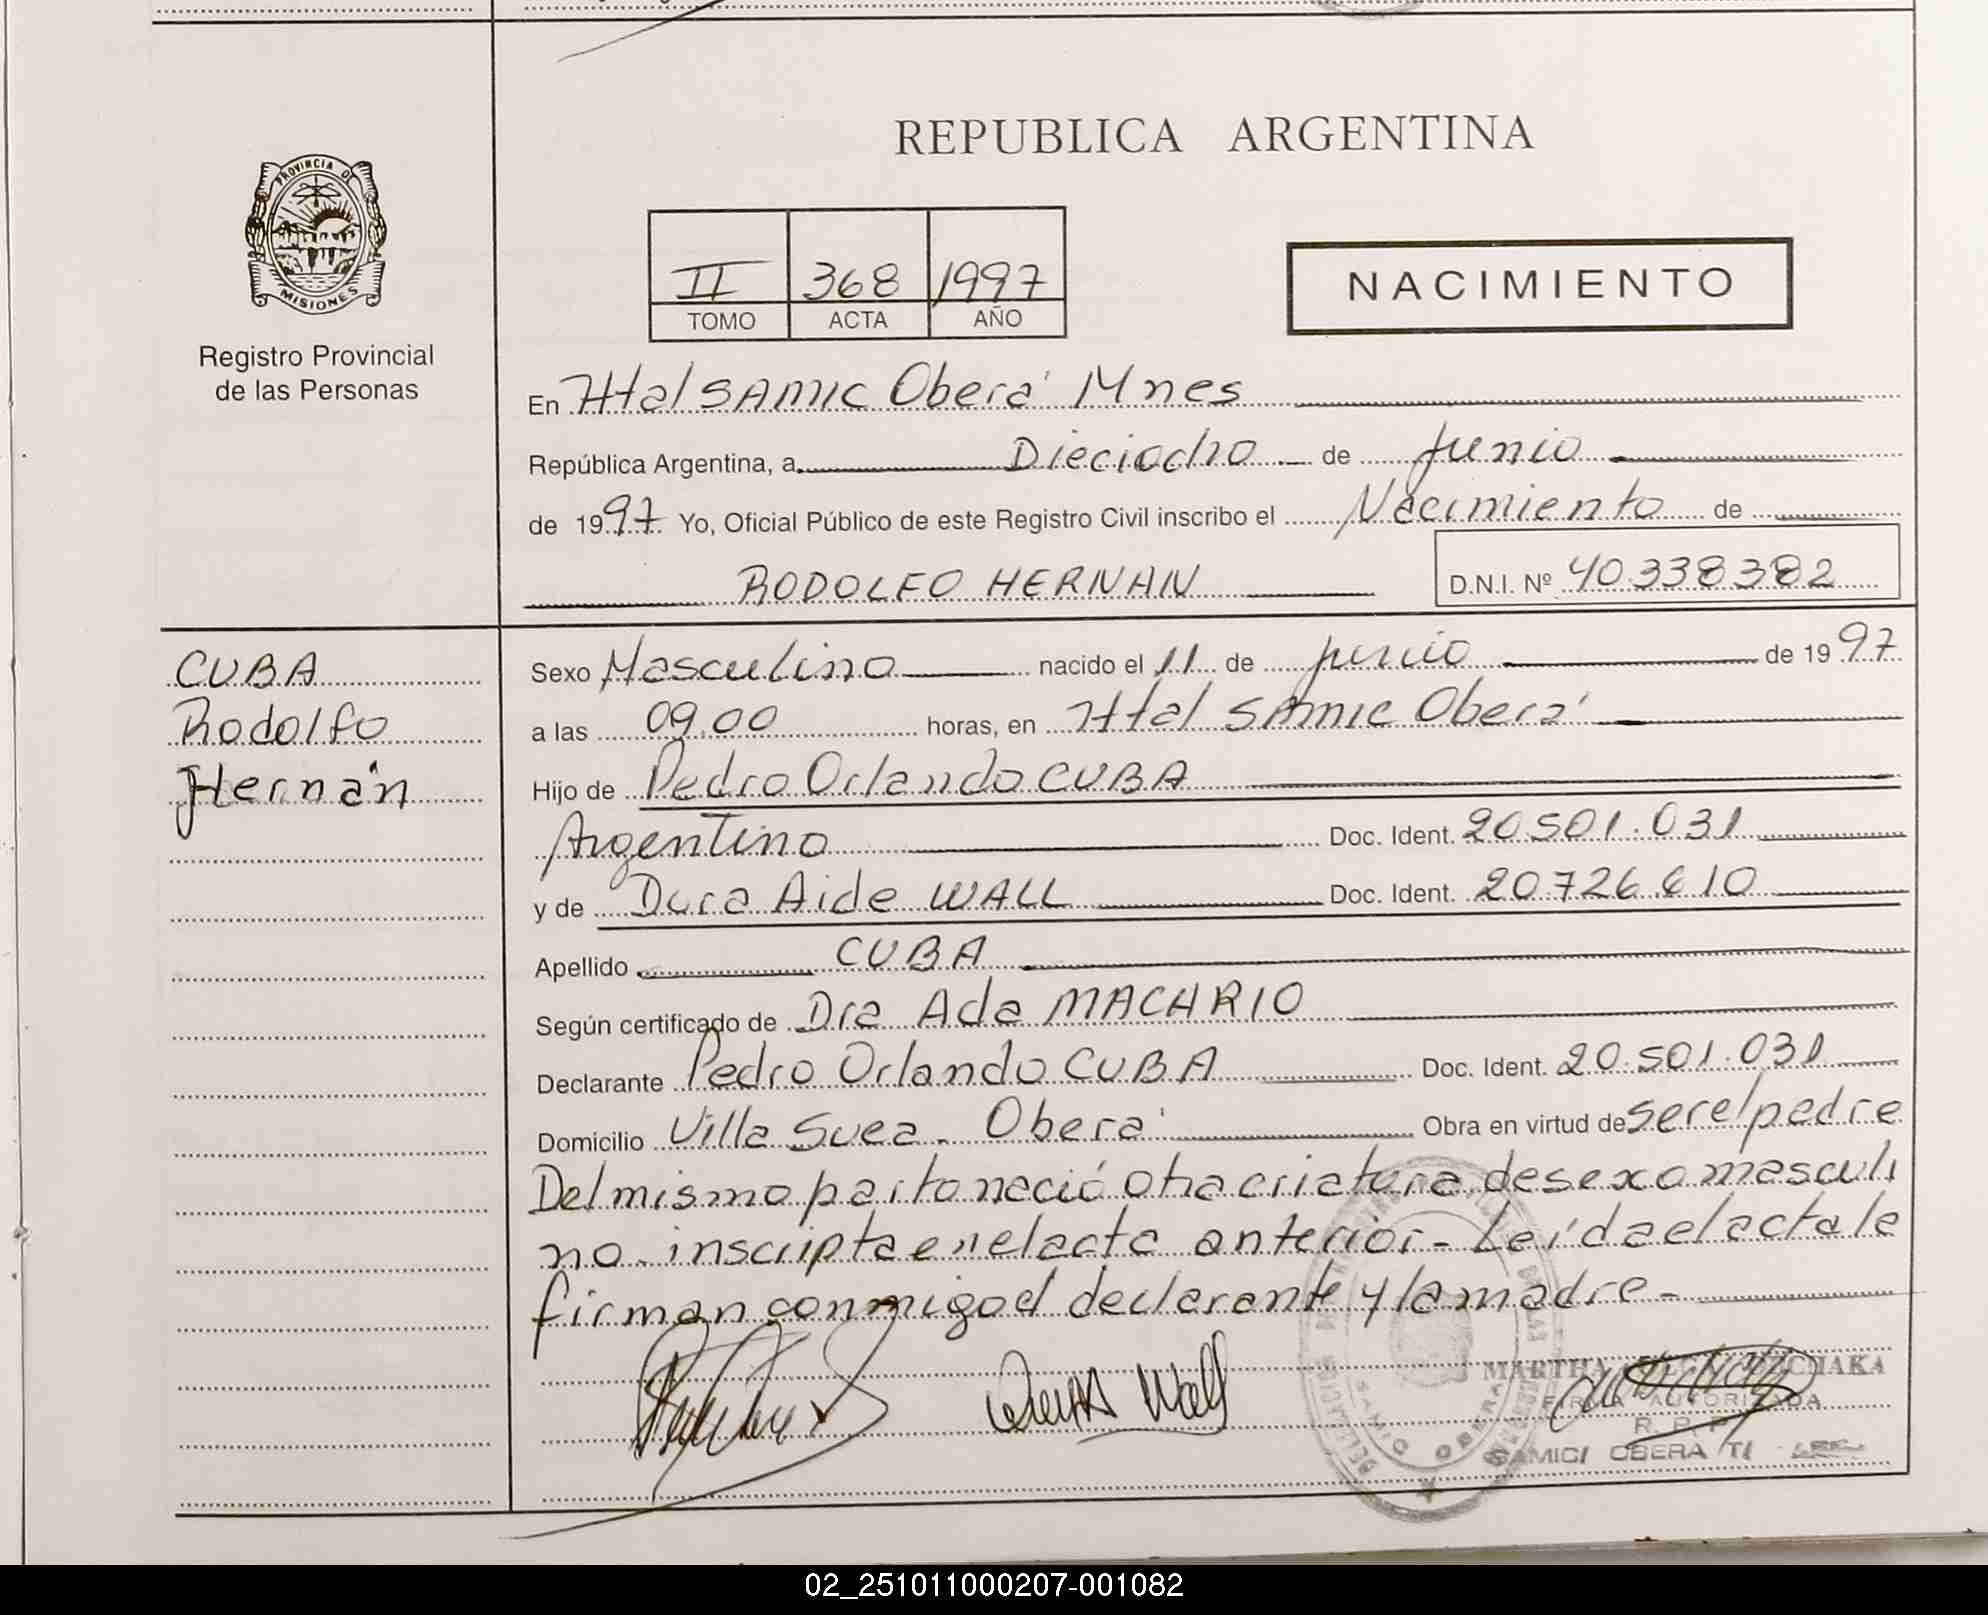 REPUBLICA ARGENTINA
PROVINCIA DE
MISIONES
Registro Provincial
de las Personas
II 368 1997
TOMO ACTA AÑO
NACIMIENTO
En Htal SAMIC Oberá Mnes
República Argentina, a Dieciocho de Junio
de 1997 Yo, Oficial Público de este Registro Civil inscribo el Nacimiento de
RODOLFO HERNAN D.N.I. Nº 40.338382
CUBA
Rodolfo
Hernán
Sexo Masculino nacido el 11 de junio de 1997
a las 09,00 horas, en Htal SAMIC Oberá
Hijo de Pedro Orlando CUBA
Argentino Doc. Ident. 20.501.031
y de Dora Aide WALL Doc. Ident. 20.726.610
Apellido CUBA
Según certificado de Dra Ada MACHRIO
Declarante Pedro Orlando CUBA Doc. Ident. 20.501.031
Domicilio Villa Svea. Oberá Obra en virtud de ser el padre
Del mismo parto nació otra criatura de sexo masculi
no inscripta en el acta anterior - Leída el acta le
firman conmigo el declarante y la madre -
Wall
MARTHA
FIRMA AUTORIZADA
R. P. P.
OBERA
02_251011000207-001082